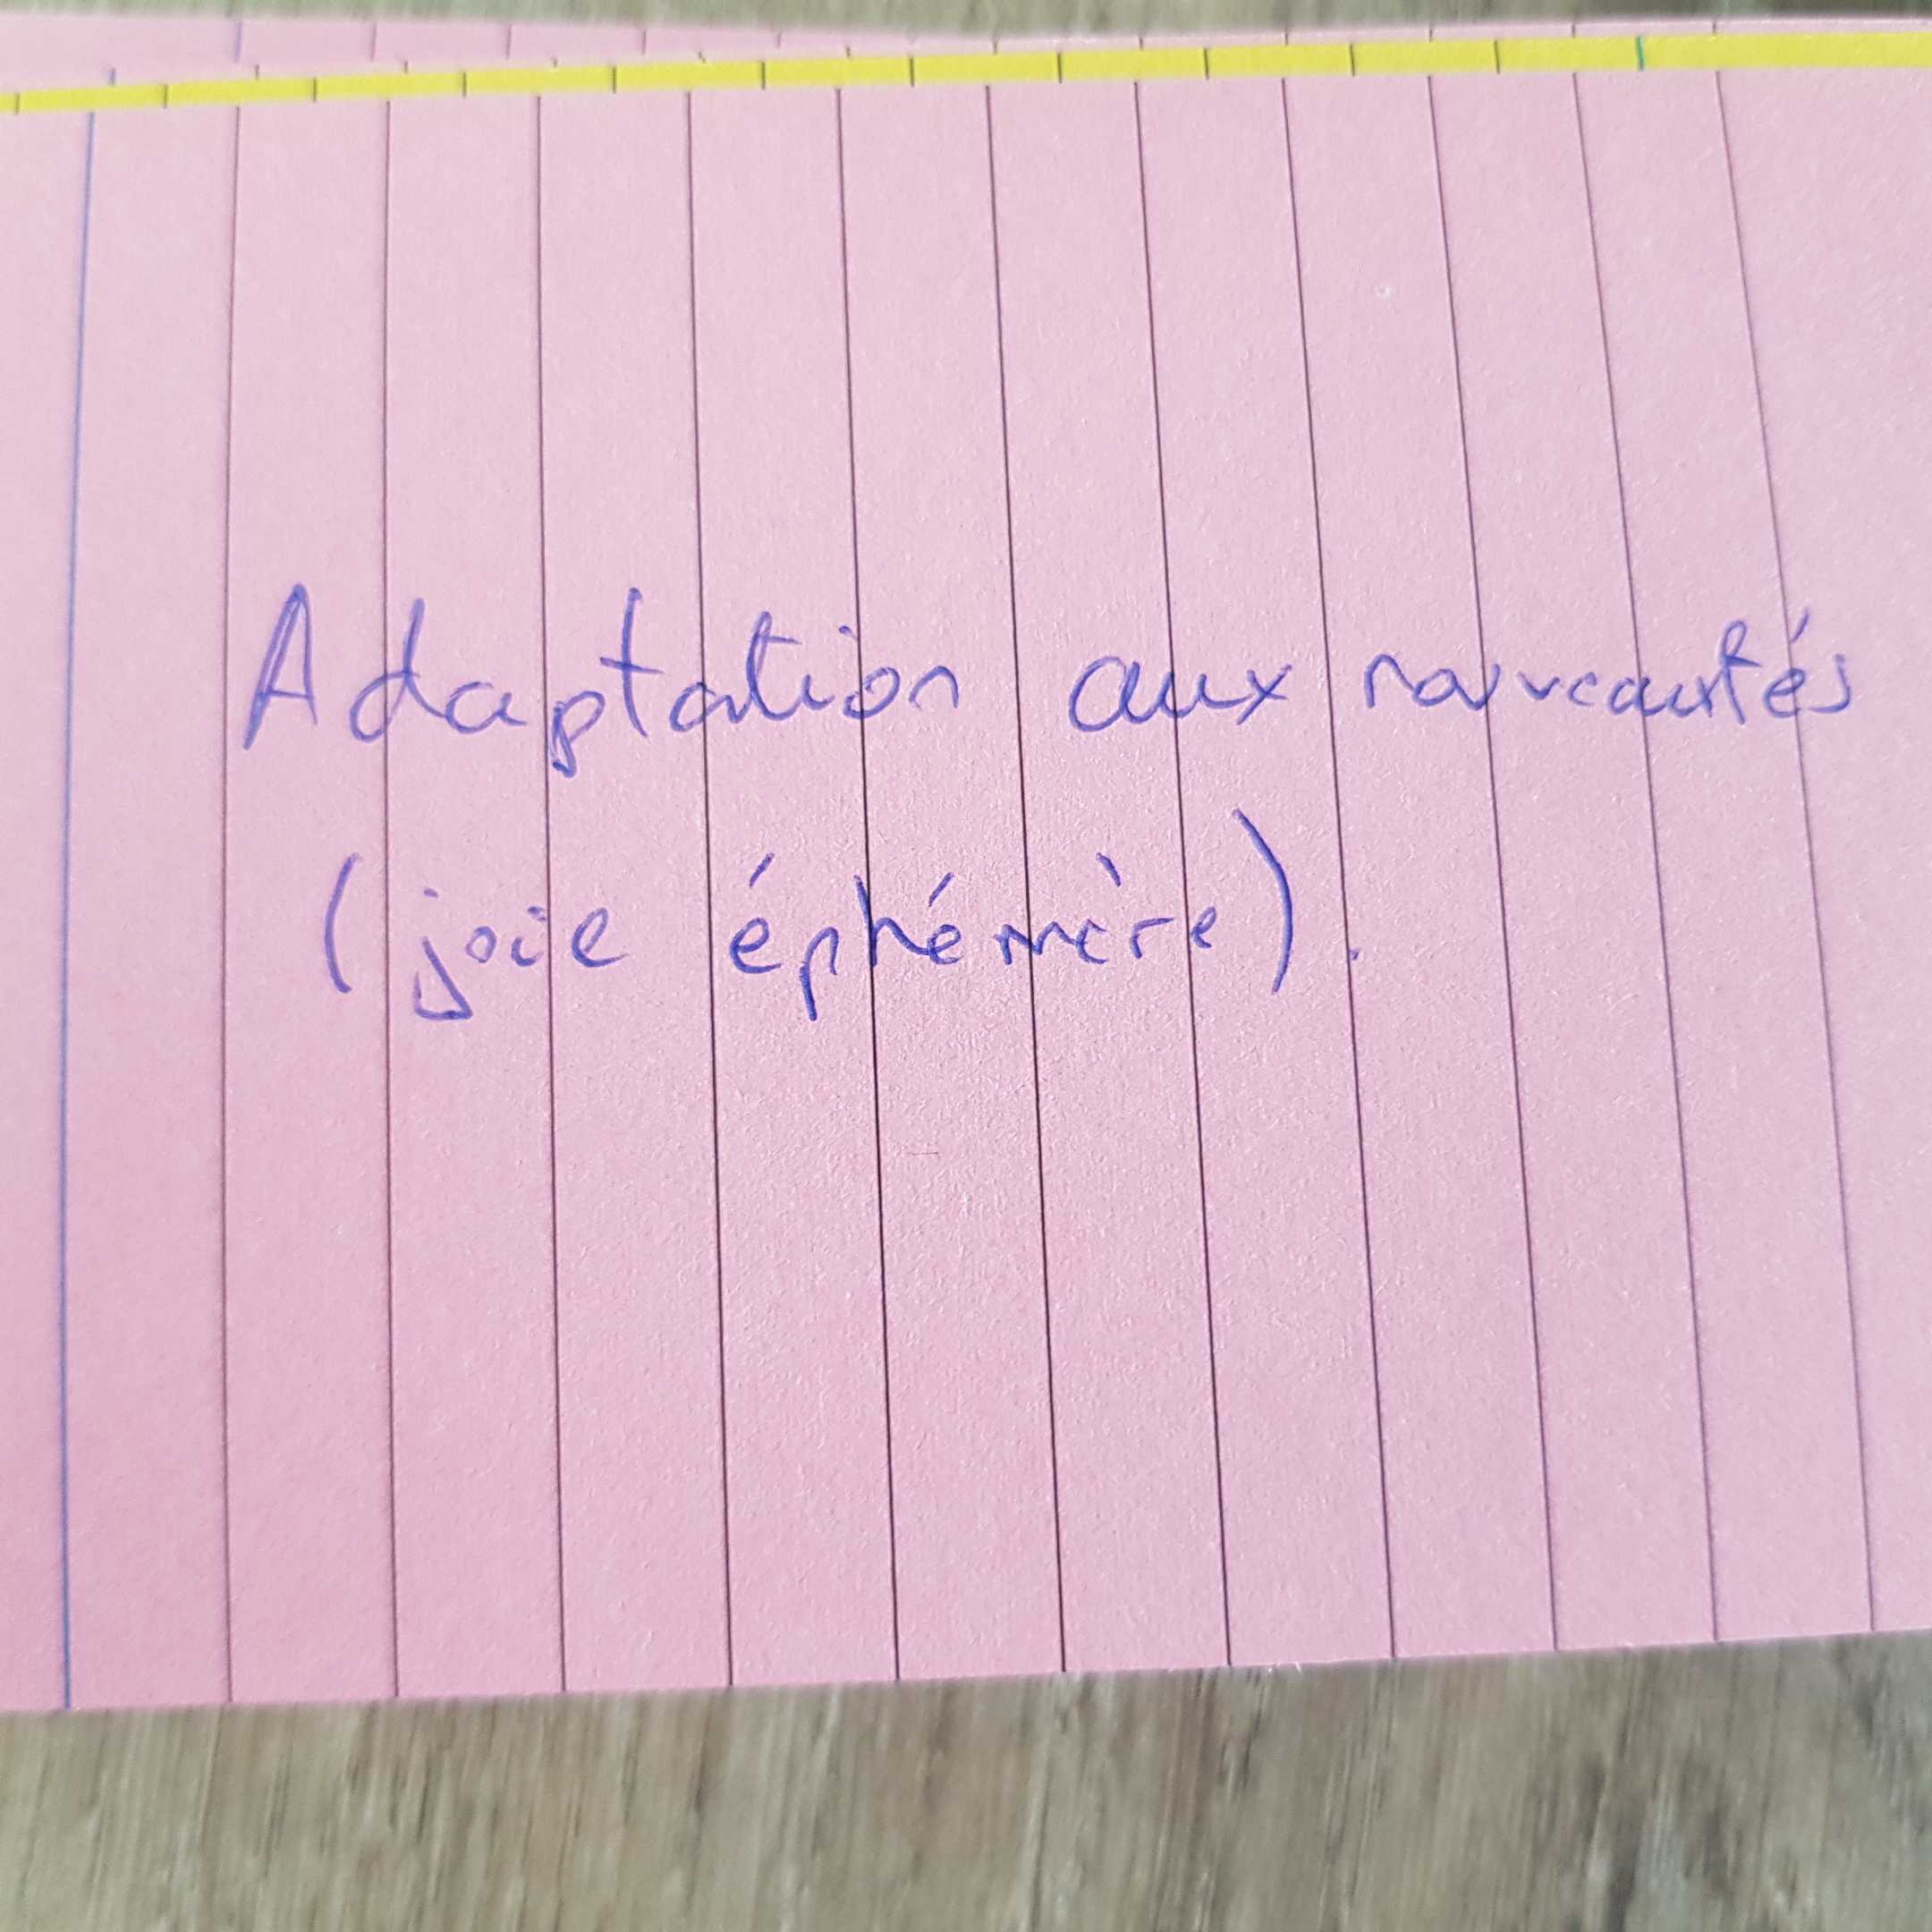 Adaptation aux nouveautés
(joie éphémère).